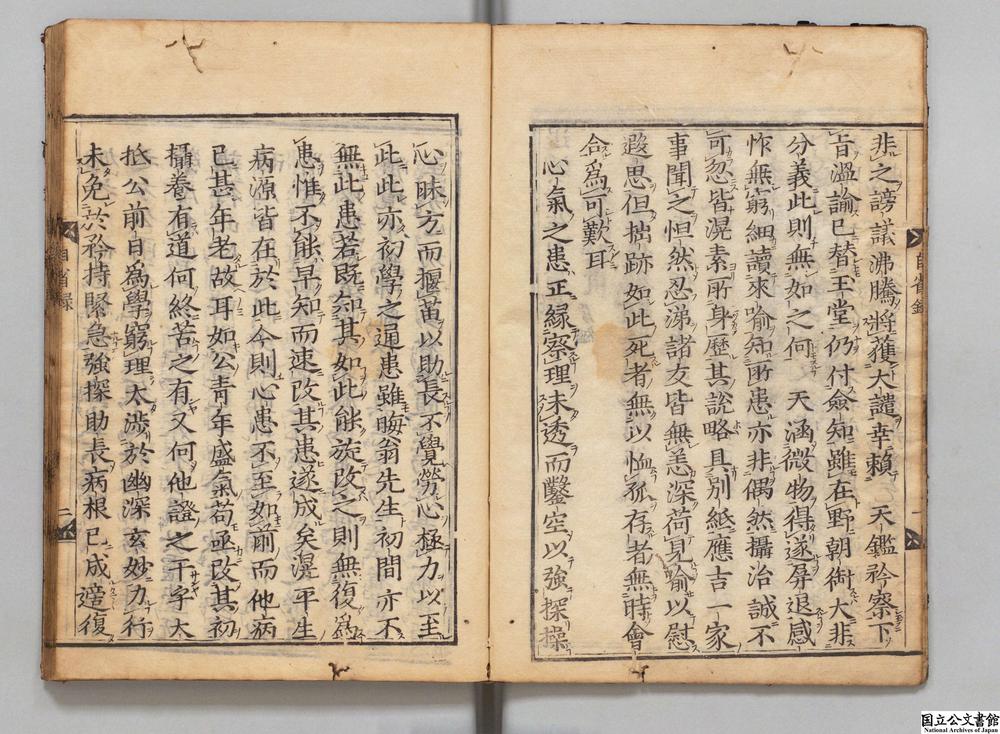 非之謗議沸騰將獲大譴幸賴　天鑑矜察下
旨溫諭已替玉堂仍付僉知雖在野朝銜大非
分義此則無如之何　天涵微物得遂屏退感
怍無窮細讀來喻知所患亦非偶然攝治誠不
可忽皆滉素所身歷其說略具別紙應吉一家
事聞之怛然忍涕諸友皆無恙深荷見喻以慰
遐思但拙跡如此死者無以恤孤存者無時會
合爲可歎耳
心氣之患正緣察理未透而鑿空以強探操
心昧方而揠苗以助長不覺勞心極力以至
此此亦初學之通患雖晦翁先生初間亦不
無此患若既知其如此能旋改之則無復爲
患惟不能早知而速改其患遂成矣滉平生
病源皆在於此今則心患不至如前而他病
已甚年老故耳如公靑年盛氣苟亟改其初
攝養有道何終苦之有又何他證之干乎大
抵公前日爲學窮理太涉於幽深玄妙力行
未免於矜持緊急強探助長病根已成適復
自省錄
一
自省錄
二
国立公文書館
National Archives of Japan